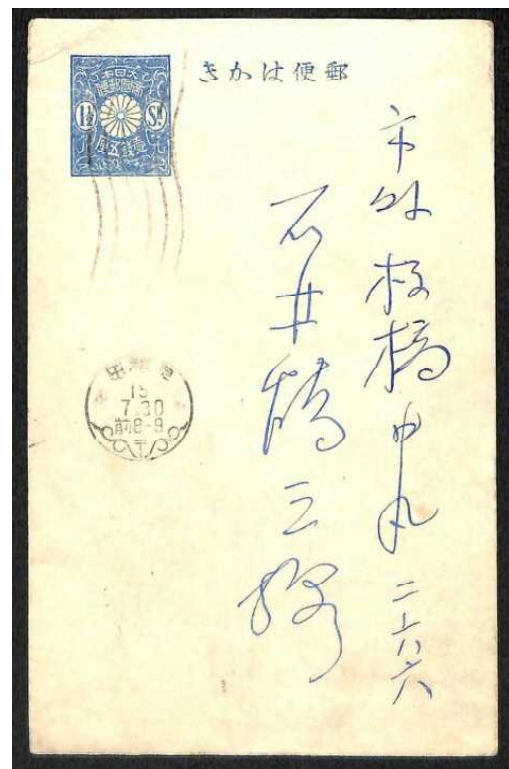 郵便はかき
大日本
帝國郵便
1½ Sn.
壹錢五厘
市外板橋中丸
石井鶴三様
15
7.30
前8-9